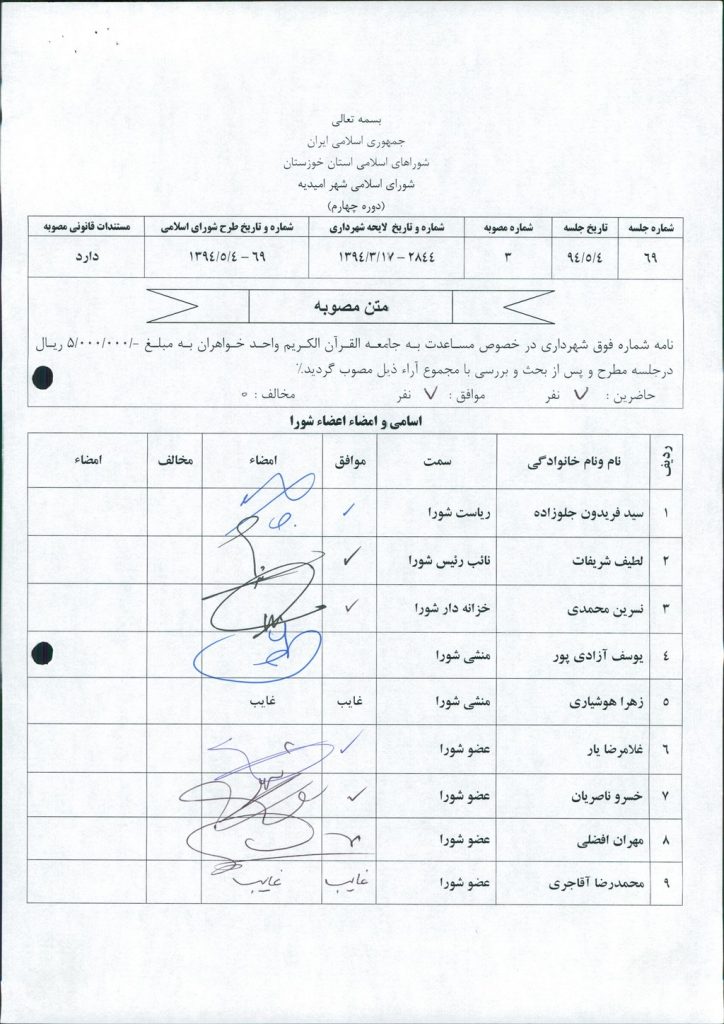 بسمه تعالی
جمهوری اسلامی ایران
شوراهای اسلامی استان خوزستان
شورای اسلامی شهر امیدیه
(دوره چهارم)
شماره جلسه تاریخ جلسه شماره مصوبه شماره و تاریخ لایحه شهرداری شماره و تاریخ طرح شورای اسلامی مستندات قانونی مصوبه
۶۹ ۹۴/۵/۴ ۳ ۲۸۴۴ – ۱۳۹۴/۳/۱۷ ۶۹ – ۱۳۹۴/۵/۴ دارد
متن مصوبه
نامه شماره فوق شهرداری در خصوص مساعدت به جامعه القرآن الکریم واحد خواهران به مبلغ -/۵/۰۰۰/۰۰۰ ریال
درجلسه مطرح و پس از بحث و بررسی با مجموع آراء ذیل مصوب گردید٪
حاضرین : ۷ نفر موافق : ۷ نفر مخالف : ۰
اسامی و امضاء اعضاء شورا
ردیف نام ونام خانوادگی سمت موافق امضاء مخالف امضاء
۱ سید فریدون جلوزاده ریاست شورا ✓
۲ لطیف شریفات نائب رئیس شورا ✓
۳ نسرین محمدی خزانه دار شورا ✓
۴ یوسف آزادی پور منشی شورا
۵ زهرا هوشیاری منشی شورا غایب غایب
۶ غلامرضا یار عضو شورا ✓
۷ خسرو ناصریان عضو شورا ✓
۸ مهران افضلی عضو شورا
۹ محمدرضا آقاجری عضو شورا غایب غایب